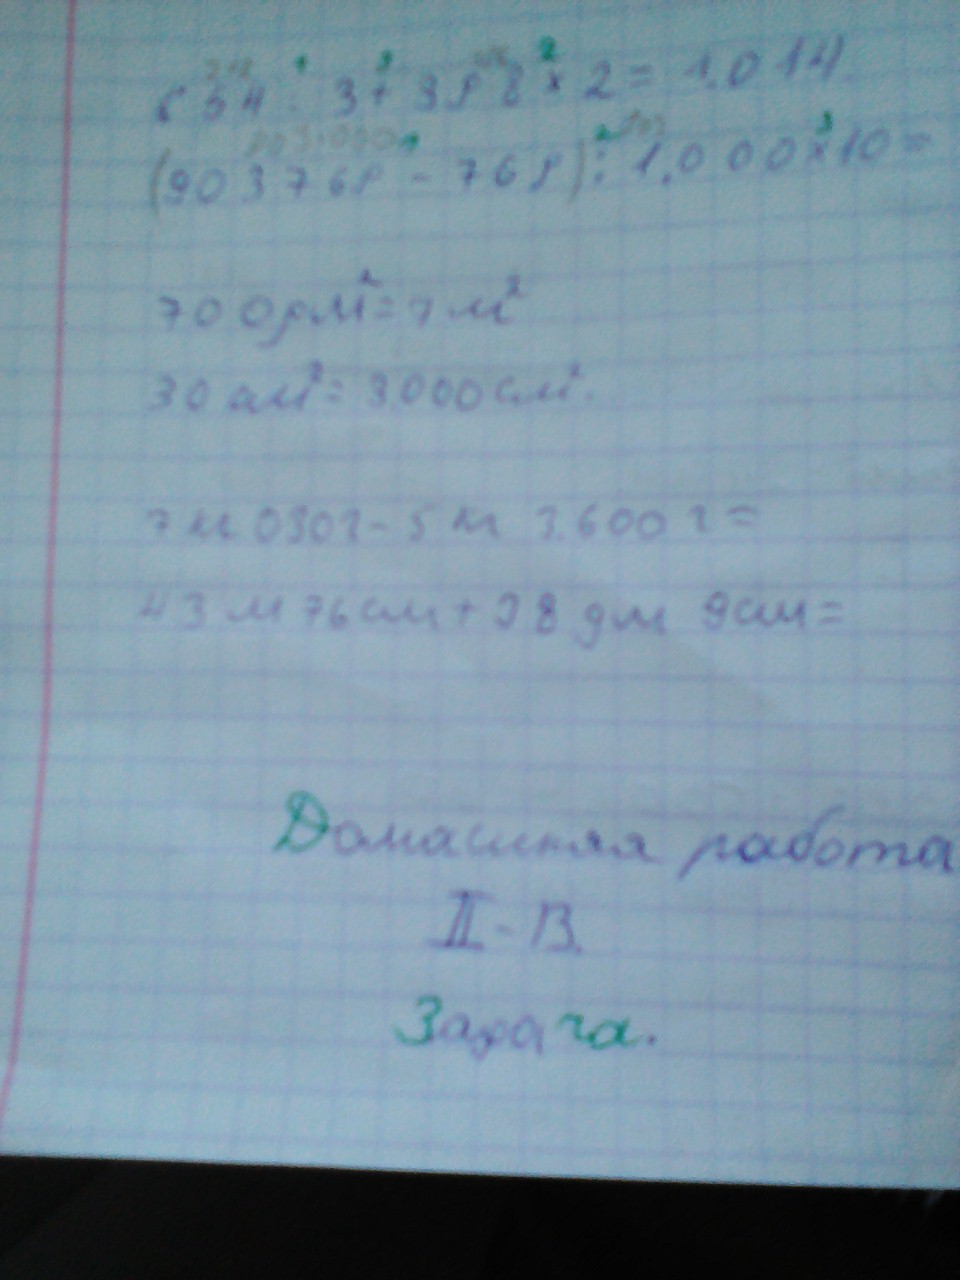 654 : 3 + 398 × 2 = 1.014.
(903768 - 768) : 1.000 × 10 =
700 дм² = 7 м²
30 дм² = 3000 см².
7 кг 030 г - 5 кг 3.600 г =
43 м 76 см + 98 дм 9 см =
Домашняя работа
II - В.
Задача.